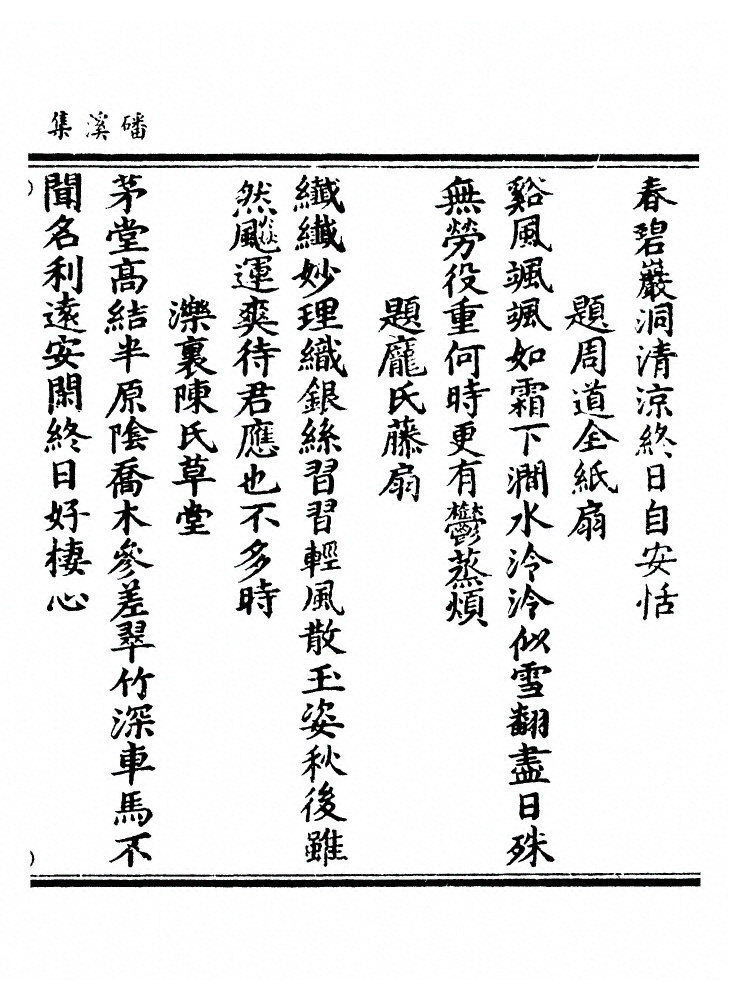 磻溪集
春碧巖洞清涼終日自安恬
題周道全紙扇
谿風颯颯如霜下澗水泠泠似雪翻盡日殊
無勞役重何時更有鬱蒸煩
題龐氏藤扇
纖纖妙理織銀絲習習輕風散玉姿秋後雖
然飈運奕待君應也不多時
濼裏陳氏草堂
茅堂高結半原陰喬木參差翠竹深車馬不
聞名利遠安閑終日好棲心